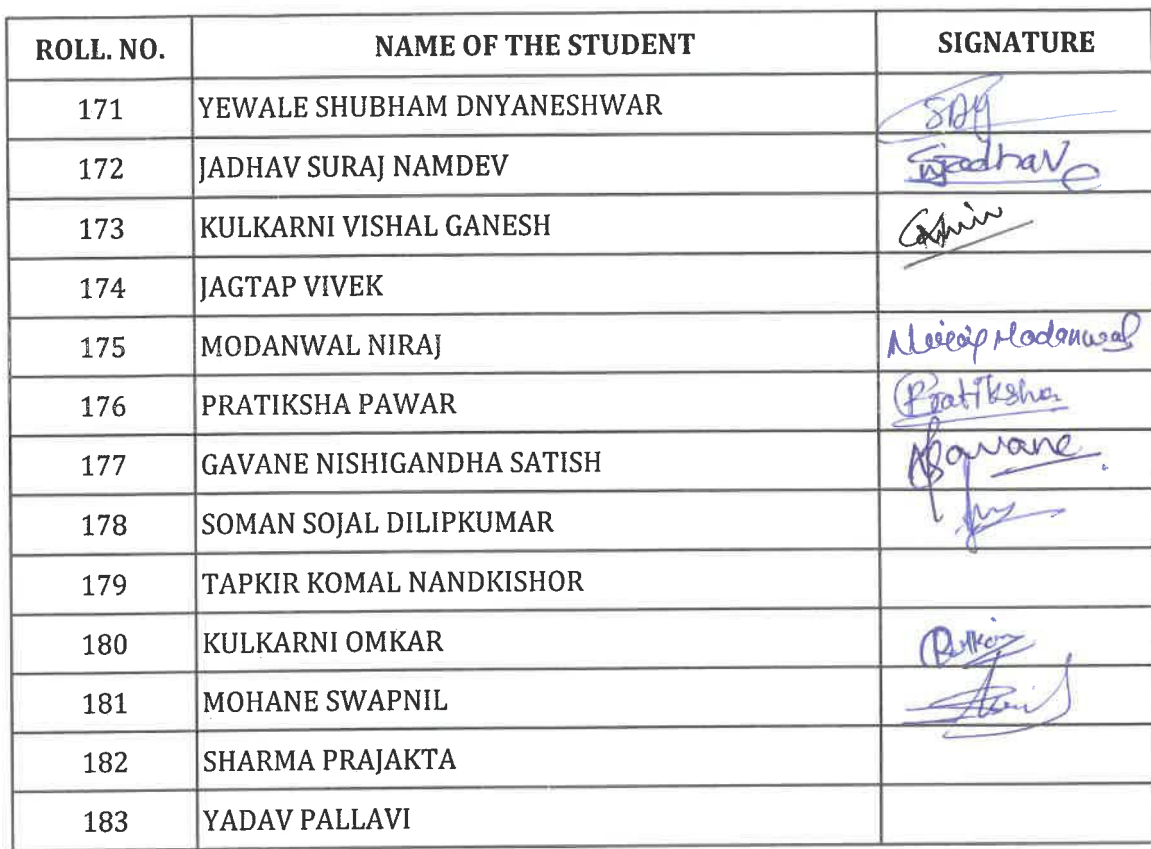 ROLL. NO. NAME OF THE STUDENT SIGNATURE
171 YEWALE SHUBHAM DNYANESHWAR SDY
172 JADHAV SURAJ NAMDEV
173 KULKARNI VISHAL GANESH
174 JAGTAP VIVEK
175 MODANWAL NIRAJ Niraj Modanwal
176 PRATIKSHA PAWAR Pratiksha
177 GAVANE NISHIGANDHA SATISH
178 SOMAN SOJAL DILIPKUMAR
179 TAPKIR KOMAL NANDKISHOR
180 KULKARNI OMKAR
181 MOHANE SWAPNIL
182 SHARMA PRAJAKTA
183 YADAV PALLAVI